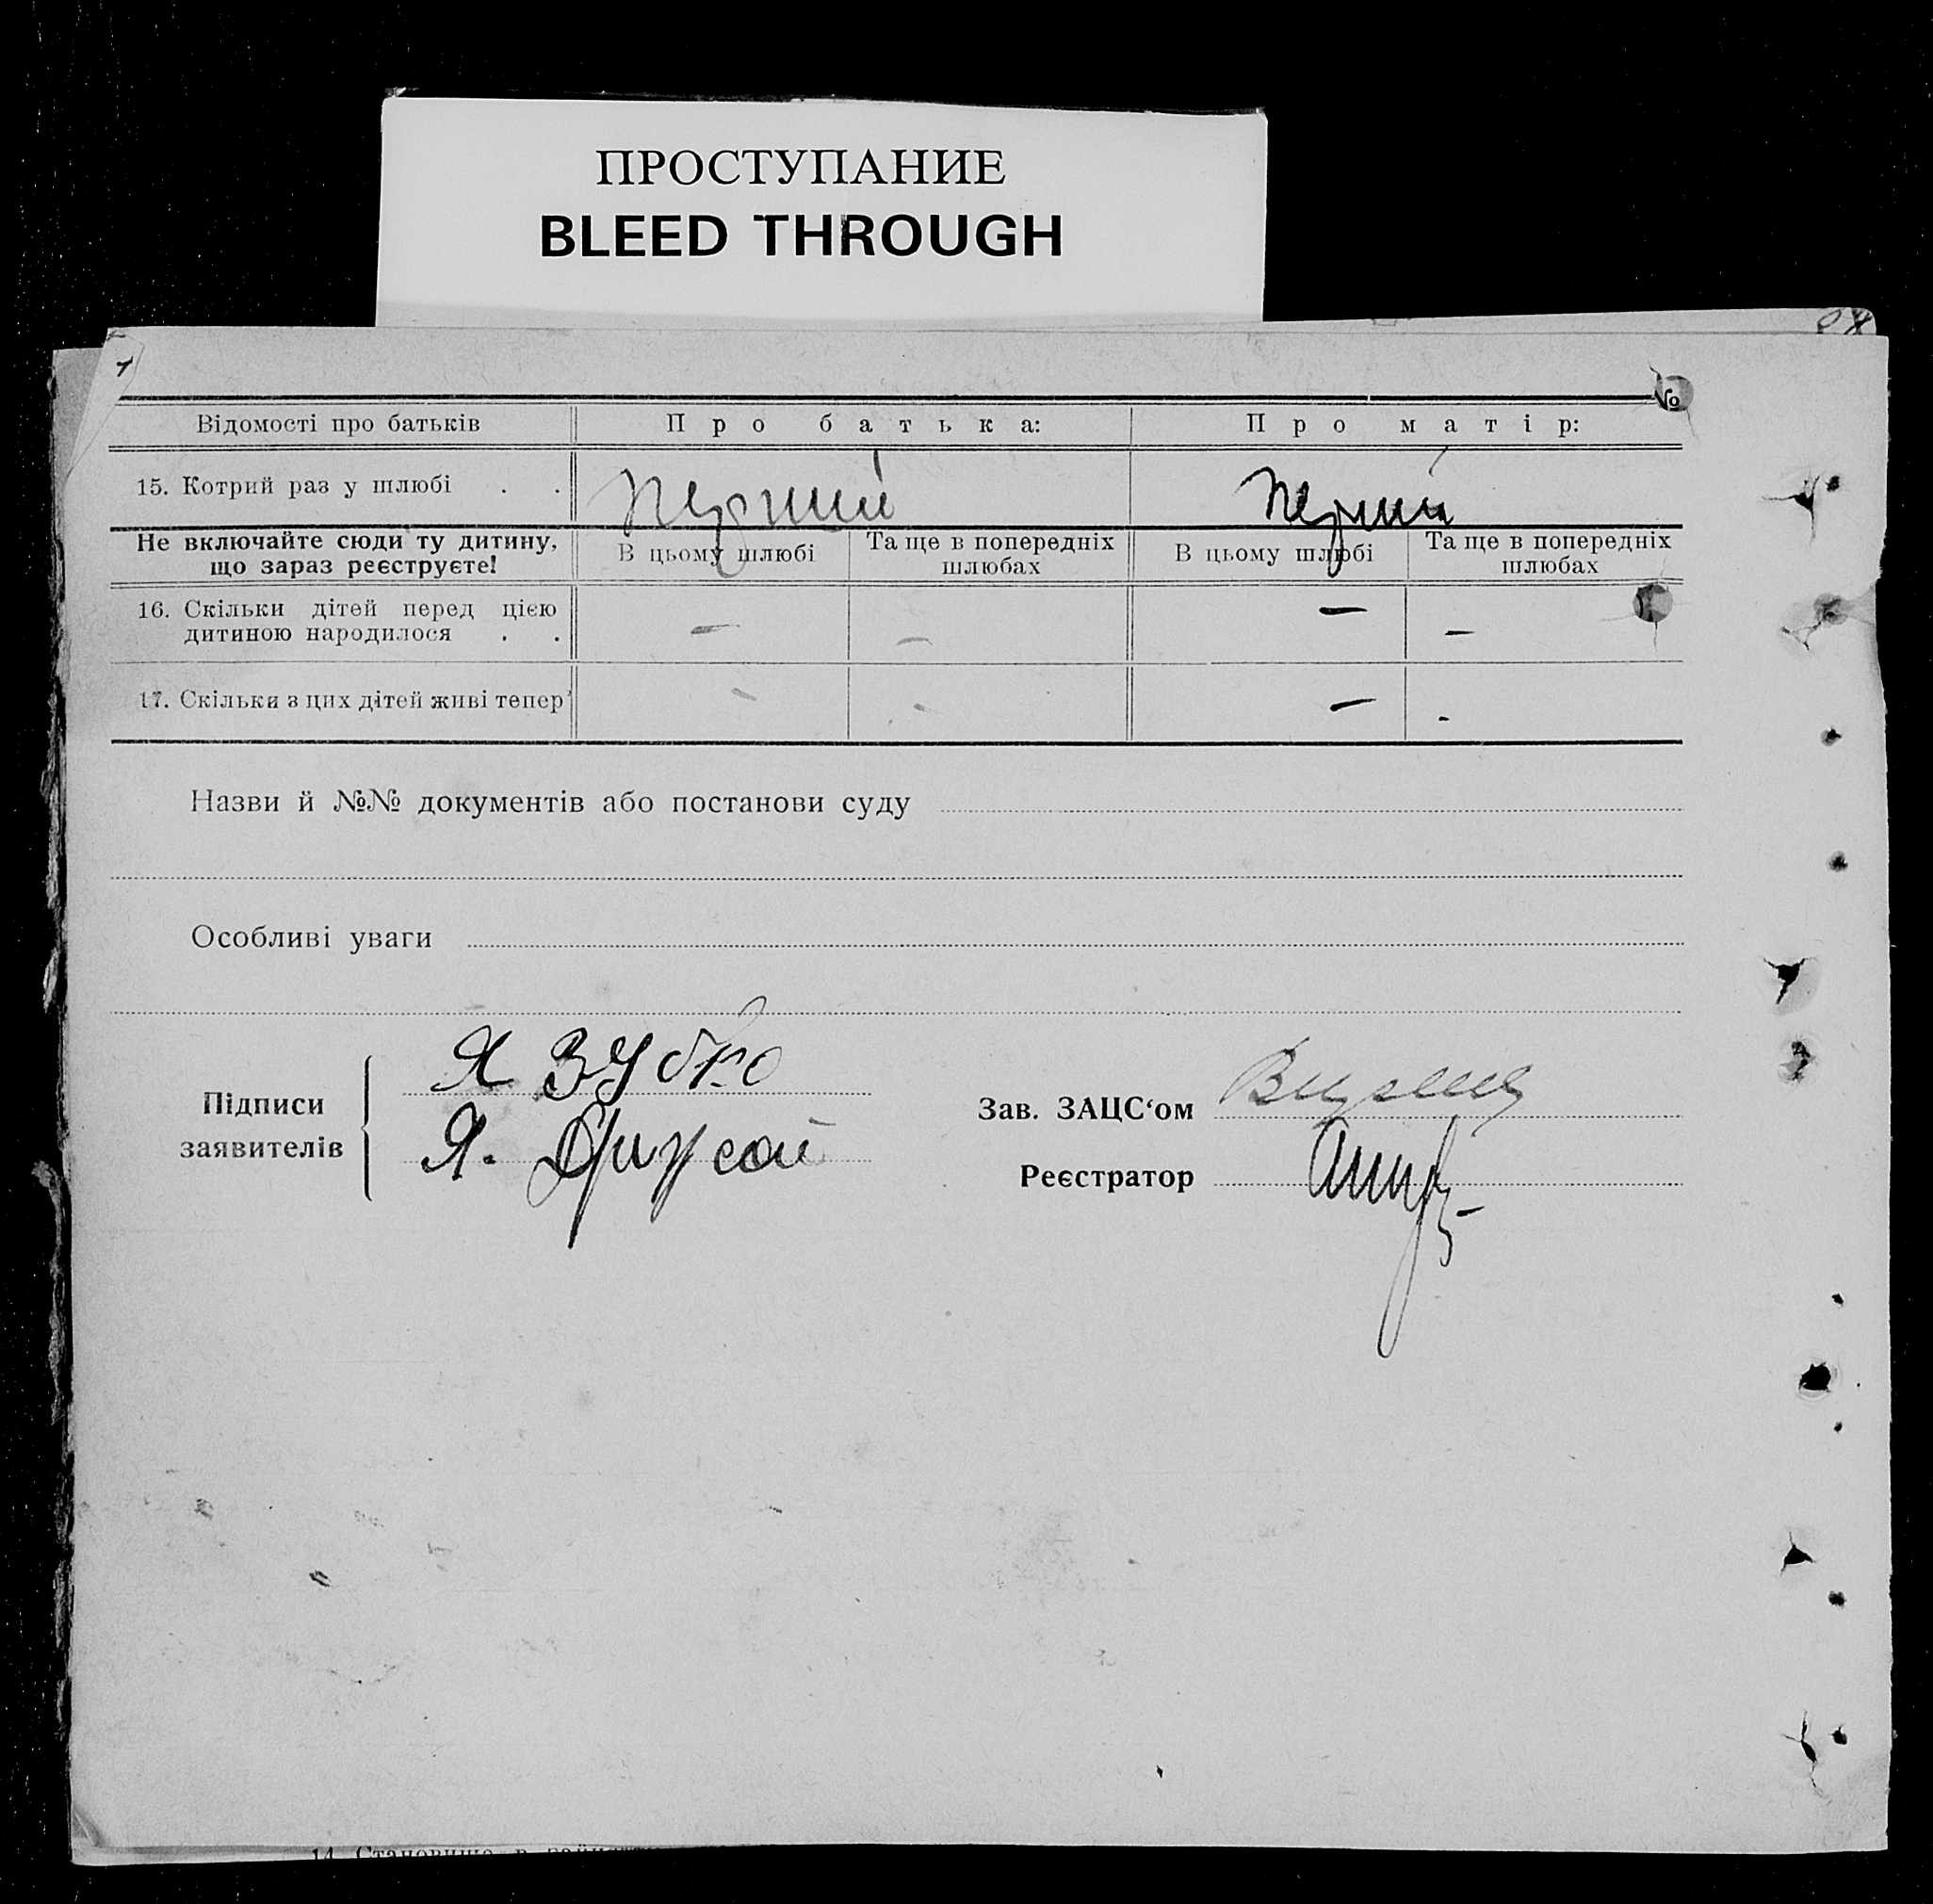 ПРОСТУПАНИЕ
BLEED THROUGH
№
Відомості про батьків Про батька: Про матір:
15. Котрий раз у шлюбі . . перший перший
Не включайте сюди ту дитину, що зараз реєструєте! В цьому шлюбі Та ще в попередніх шлюбах В цьому шлюбі Та ще в попередніх шлюбах
16. Скільки дітей перед цією
дитиною народилося . . — — — —
17. Скільки з цих дітей живі тепер' - - — -
Назви й №№ документів або постанови суду
Особливі уваги
Підписи
заявителів
Я Зубко
Я.
Зав. ЗАЦС‘ом
Реєстратор
14. Становище в